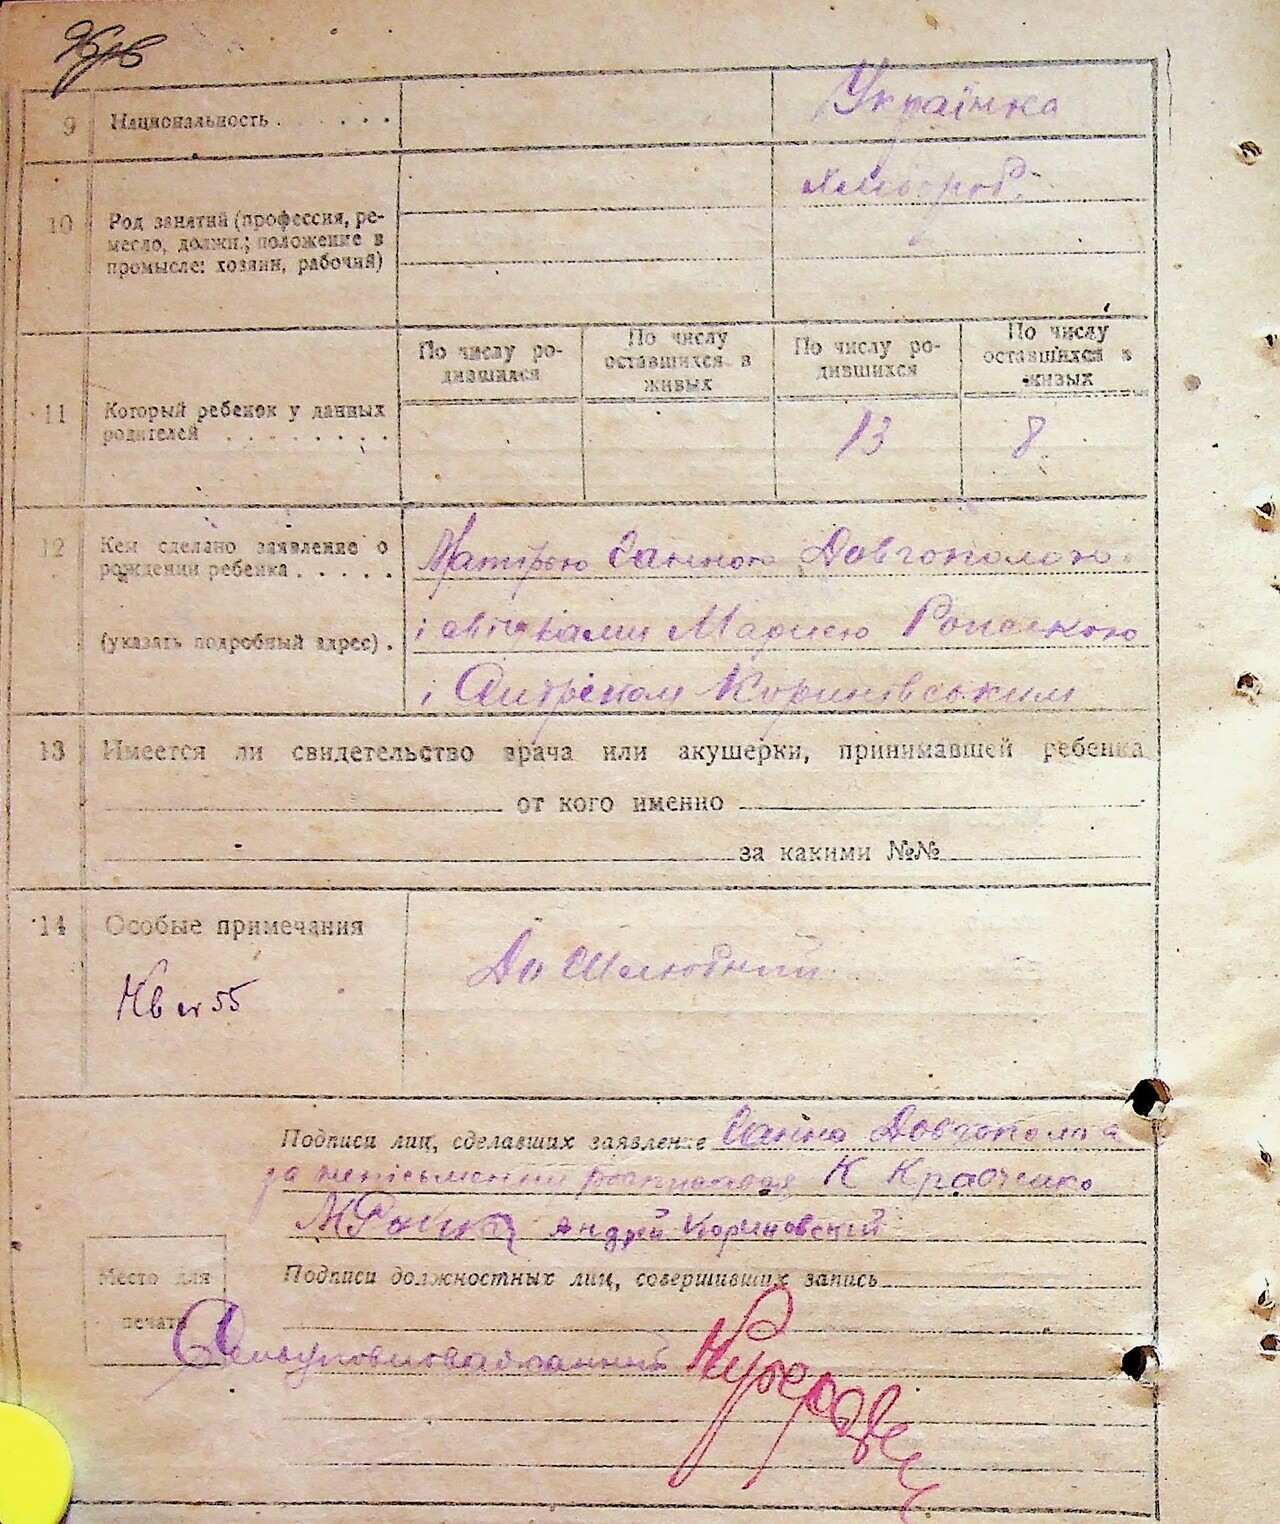 9 Национальность . . . . . . Українка
10 Род занятий (профессия, ре-
месло, должн.; положение в
промысле: хозяин, рабочий)
хлібороб.
По числу ро-
дившихся
По числу
оставшихся в
живых
По числу ро-
дившихся
По числу
оставшихся в
живых
11 Который ребенок у данных
родителей . . . . . . . .
13 8.
12 Кем сделано заявление о
рождении ребенка . . . . .
(указать подробный адрес) .
Матірью Ганною Довгополою
і свідками Марією
і Андрієм Кориновським
13 Имеется ли свидетельство врача или акушерки, принимавшей ребенка
от кого именно
за какими №№
14 Особые примечания
До
55
Подписи лиц, сделавших заявление Ганна Довгопола
за неписьменну К Кравченко
Андрей Кориновский
Место для
печати
Подписи должностных лиц, совершивших запись